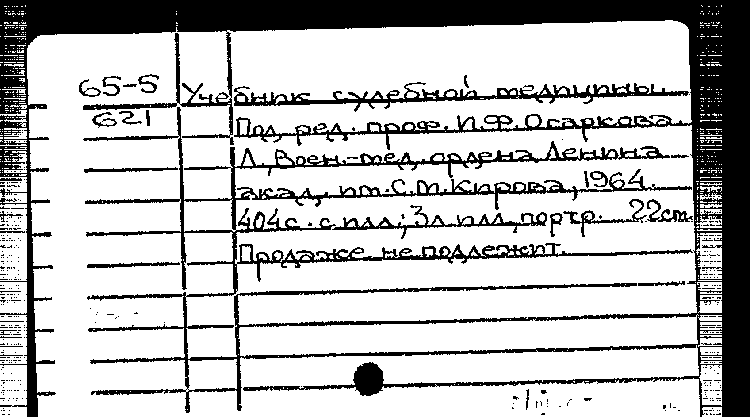 65-5
621
Учебник судебной медицины.
Под ред. проф. И.Ф. Осаркова.
Л., Воен.-мед. ордена Ленина
акад. им. С.М. Кирова, 1964.
404 с. с илл.; 3 л. илл., портр. 22 см.
Продаже не подлежит.